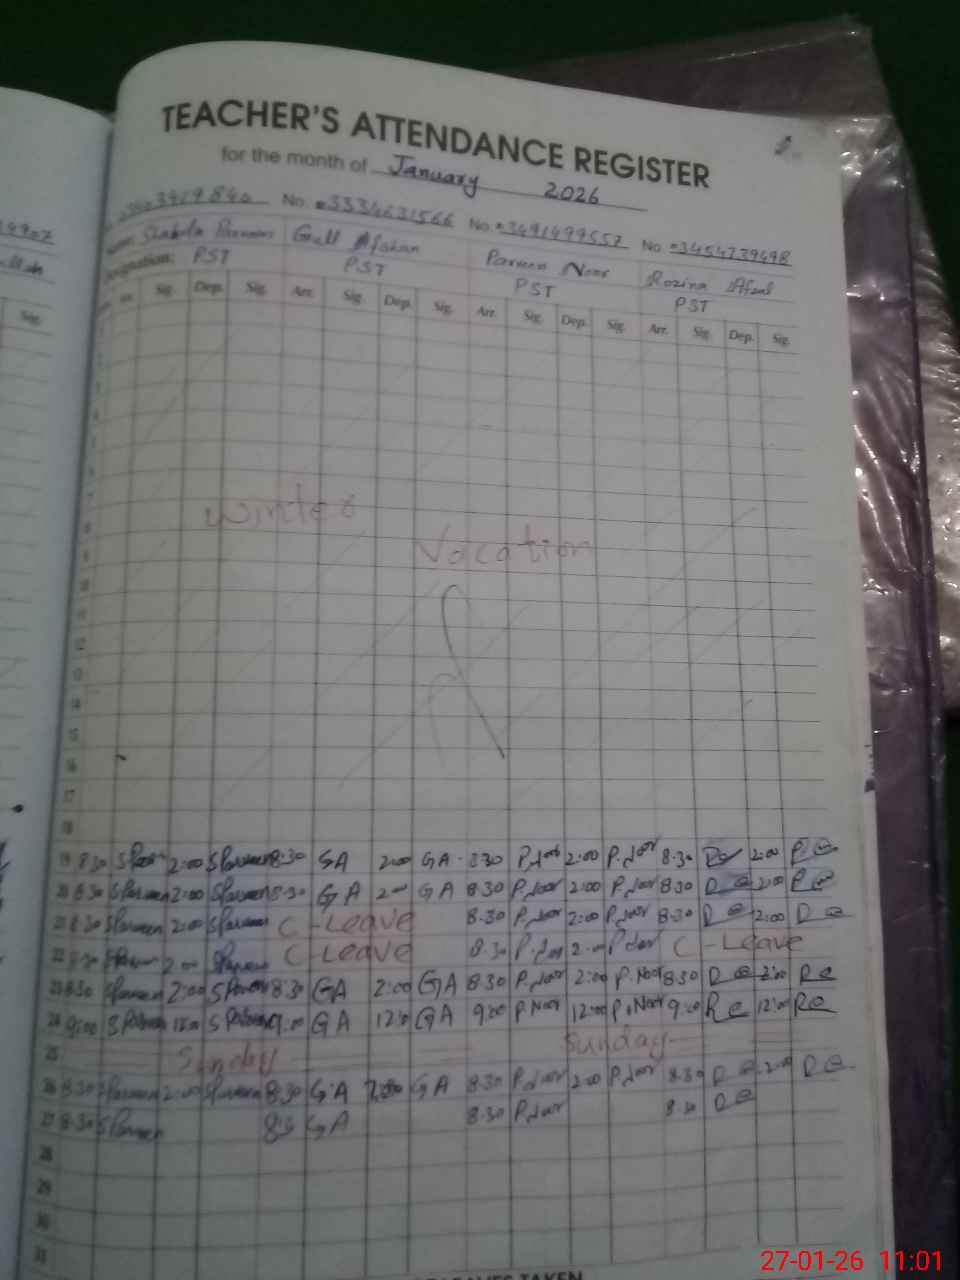 TEACHER'S ATTENDANCE REGISTER
for the month of January 2026
No. 03334631566 No. 03491499557 No. 03454739498
Gull Afshan Parveen Noor Rozina Afzal
Designation: PST PST PST PST
Sig. Arr. Sig. Dep. Sig. Arr. Sig. Dep. Sig. Arr. Sig. Dep. Sig. Arr. Sig. Dep. Sig.
8
9
10
11
12
13
14
15
16
17
18
winter
Vacation
19 8:30 2:00 SParveen 8:30 GA 2:00 GA 8:30 P.Noor 2:00 P.Noor 8.30 2:00
20 8:30 SParveen 2:00 SParveen 8:30 GA 2:00 GA 8:30 P.Noor 2:00 P.Noor 8:30 2:00
21 8:30 SParveen 2:00 SParveen C-Leave 8:30 P.Noor 2:00 P.Noor 8:30 2:00
22 8:30 2:00 C-Leave 8:30 P.Noor 2:00 P.Noor C-Leave
23 8:30 SParveen 2:00 SParveen 8:30 GA 2:00 GA 8:30 P.Noor 2:00 P.Noor 8:30 2:00
24 9:00 SParveen 12:00 SParveen 9:00 GA 12:00 GA 9:00 P.Noor 12:00 P.Noor 9:00 12:00
25 Sunday Sunday
26 8:30 SParveen 2:00 SParveen 8:30 GA GA 8:30 P.Noor 2:00 P.Noor 8:30 2:00
27 8:30 SParveen 8:30 GA 8:30 P.Noor 8:30
28
29
30
31
27-01-26 11:01